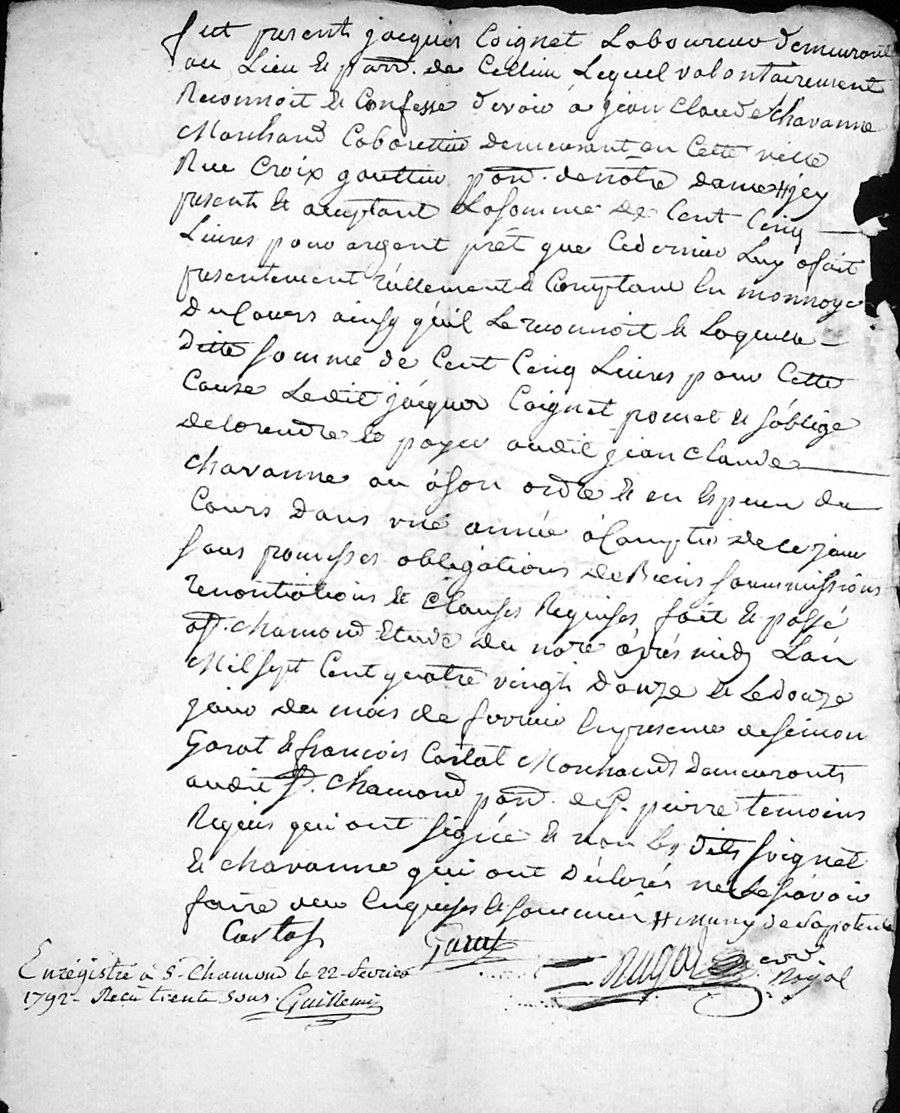 fut present jacques Coignet Laboureur demeurant
au Lieu & parr. de Cellieu Lequel volontairement
Reconnoit & Confesse devoir à jean Claude Chavanne
Marchand Cabarettier demeurant en Cette ville
Rue Croix gauttier parr. de nôtre dame # jcy
present & aceptant La somme de Cent Cinq
Livres pour argent prêt que Cedernier Luy a fait
presentement réellement & Comptant En monnoye
Du Cours ainsy qu'il Le reconnoit & Laquelle
Ditte somme de Cent Cinq Livres pour Cette
Cause Ledit jacques Coignet promet & s'oblige
de La rendre & payer audit jean Claude
Chavanne ou à son ordre & en Espece du
Cours Dans une année à Compter de ce jour
sous promesses obligations de Biens soummissions
renontiations & Clauses Requises fait & passé
à St. Chamond Etude du nore après midy L'an
Mil sept Cent quatre vingt douze & Le douze
jour du mois de fevrier En presence de simon
Garat & françois Cartal Marchands demeurants
audit St. Chamond parr. de St. pierre temoins
Requis qui ont signé & non Les dits Coignet
& Chavanne qui ont Déclarés ne Le sçavoir
faire de ce Enquis & sommés # munny de sa patente
Cartal Garat
Rugal
Royal
Enregistré à St. Chamond le 22 fevrier
1792. Reçu trente sous. Guillemin